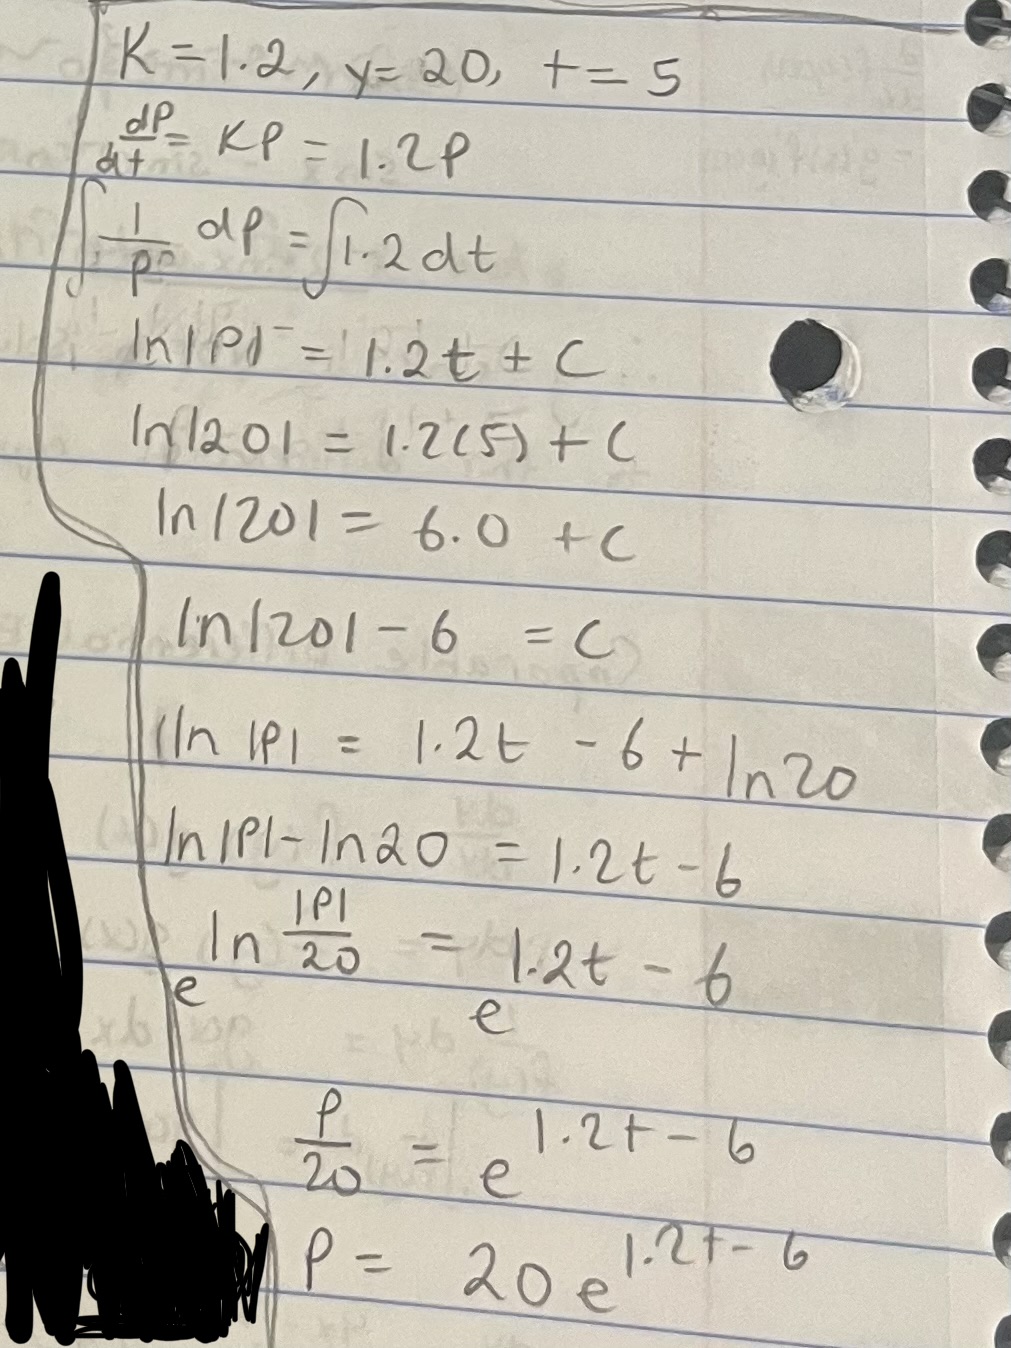 K = 1.2, y = 20, t = 5
dP/dt = KP = 1.2P
∫ 1/P dP = ∫ 1.2 dt
ln|P| = 1.2t + C
ln|20| = 1.2(5) + C
ln|20| = 6.0 + C
ln|20| - 6 = C
ln |P| = 1.2t - 6 + ln 20
ln|P| - ln 20 = 1.2t - 6
e^(ln |P|/20) = e^(1.2t - 6)
P/20 = e^(1.2t - 6)
P = 20 e^(1.2t - 6)